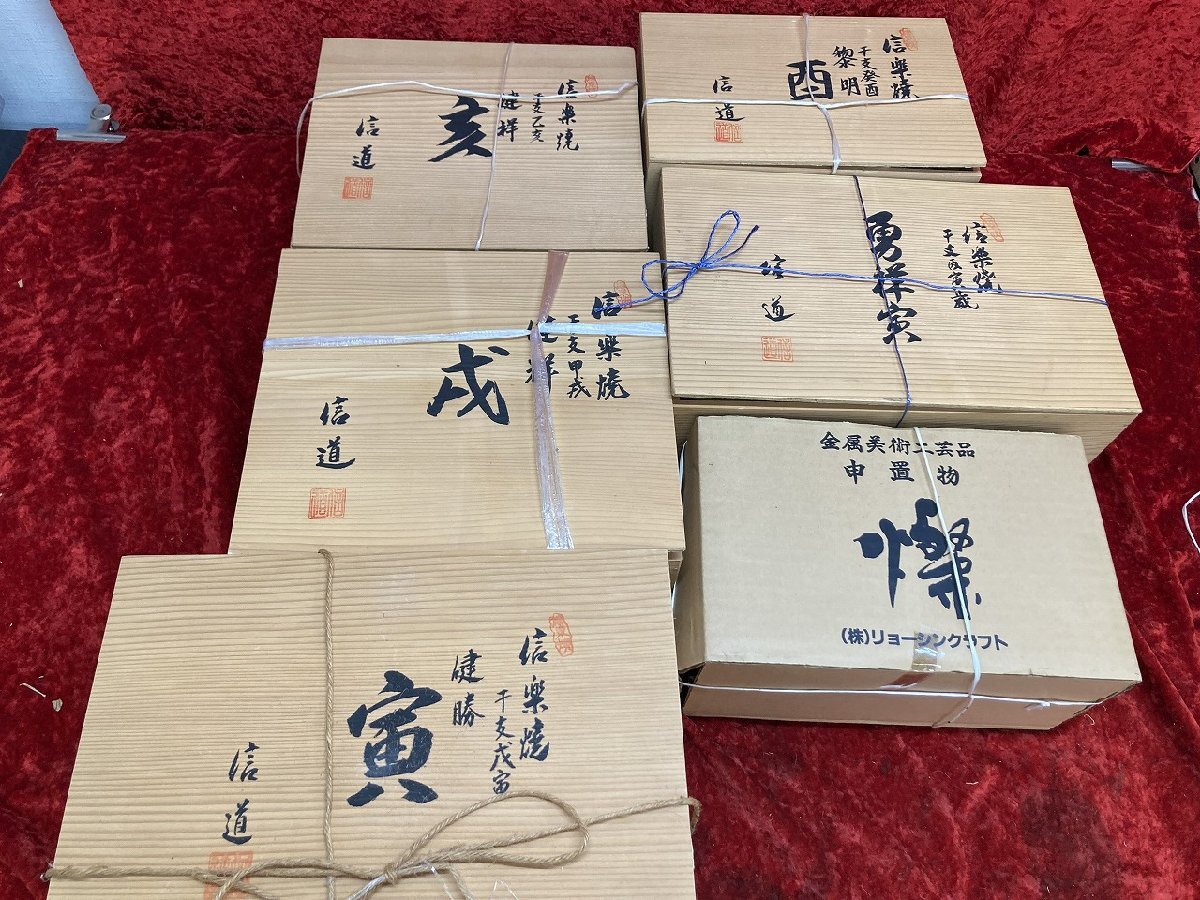 信樂燒
干支乙亥
健祥
亥
信道
信樂燒
干支癸酉
黎明
酉
信道
信樂燒
干支甲戌
健祥
戌
信道
信樂燒
干支丙寅歳
勇祥寅
信道
信樂燒
干支戊寅
健勝
寅
信道
金属美術工芸品
申置物
燦
(株)リョーシンクラフト